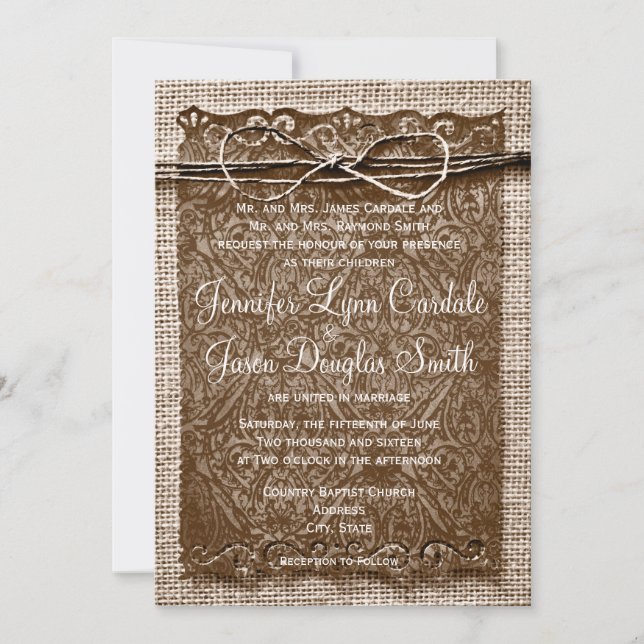 Mr. and Mrs. James Cardale and
Mr. and Mrs. Raymond Smith
request the honour of your presence
as their children
Jennifer Lynn Cardale
&
Jason Douglas Smith
are united in marriage
Saturday, the fifteenth of June
Two thousand and sixteen
at Two o'clock in the afternoon
Country Baptist Church
Address
City, State
Reception to Follow